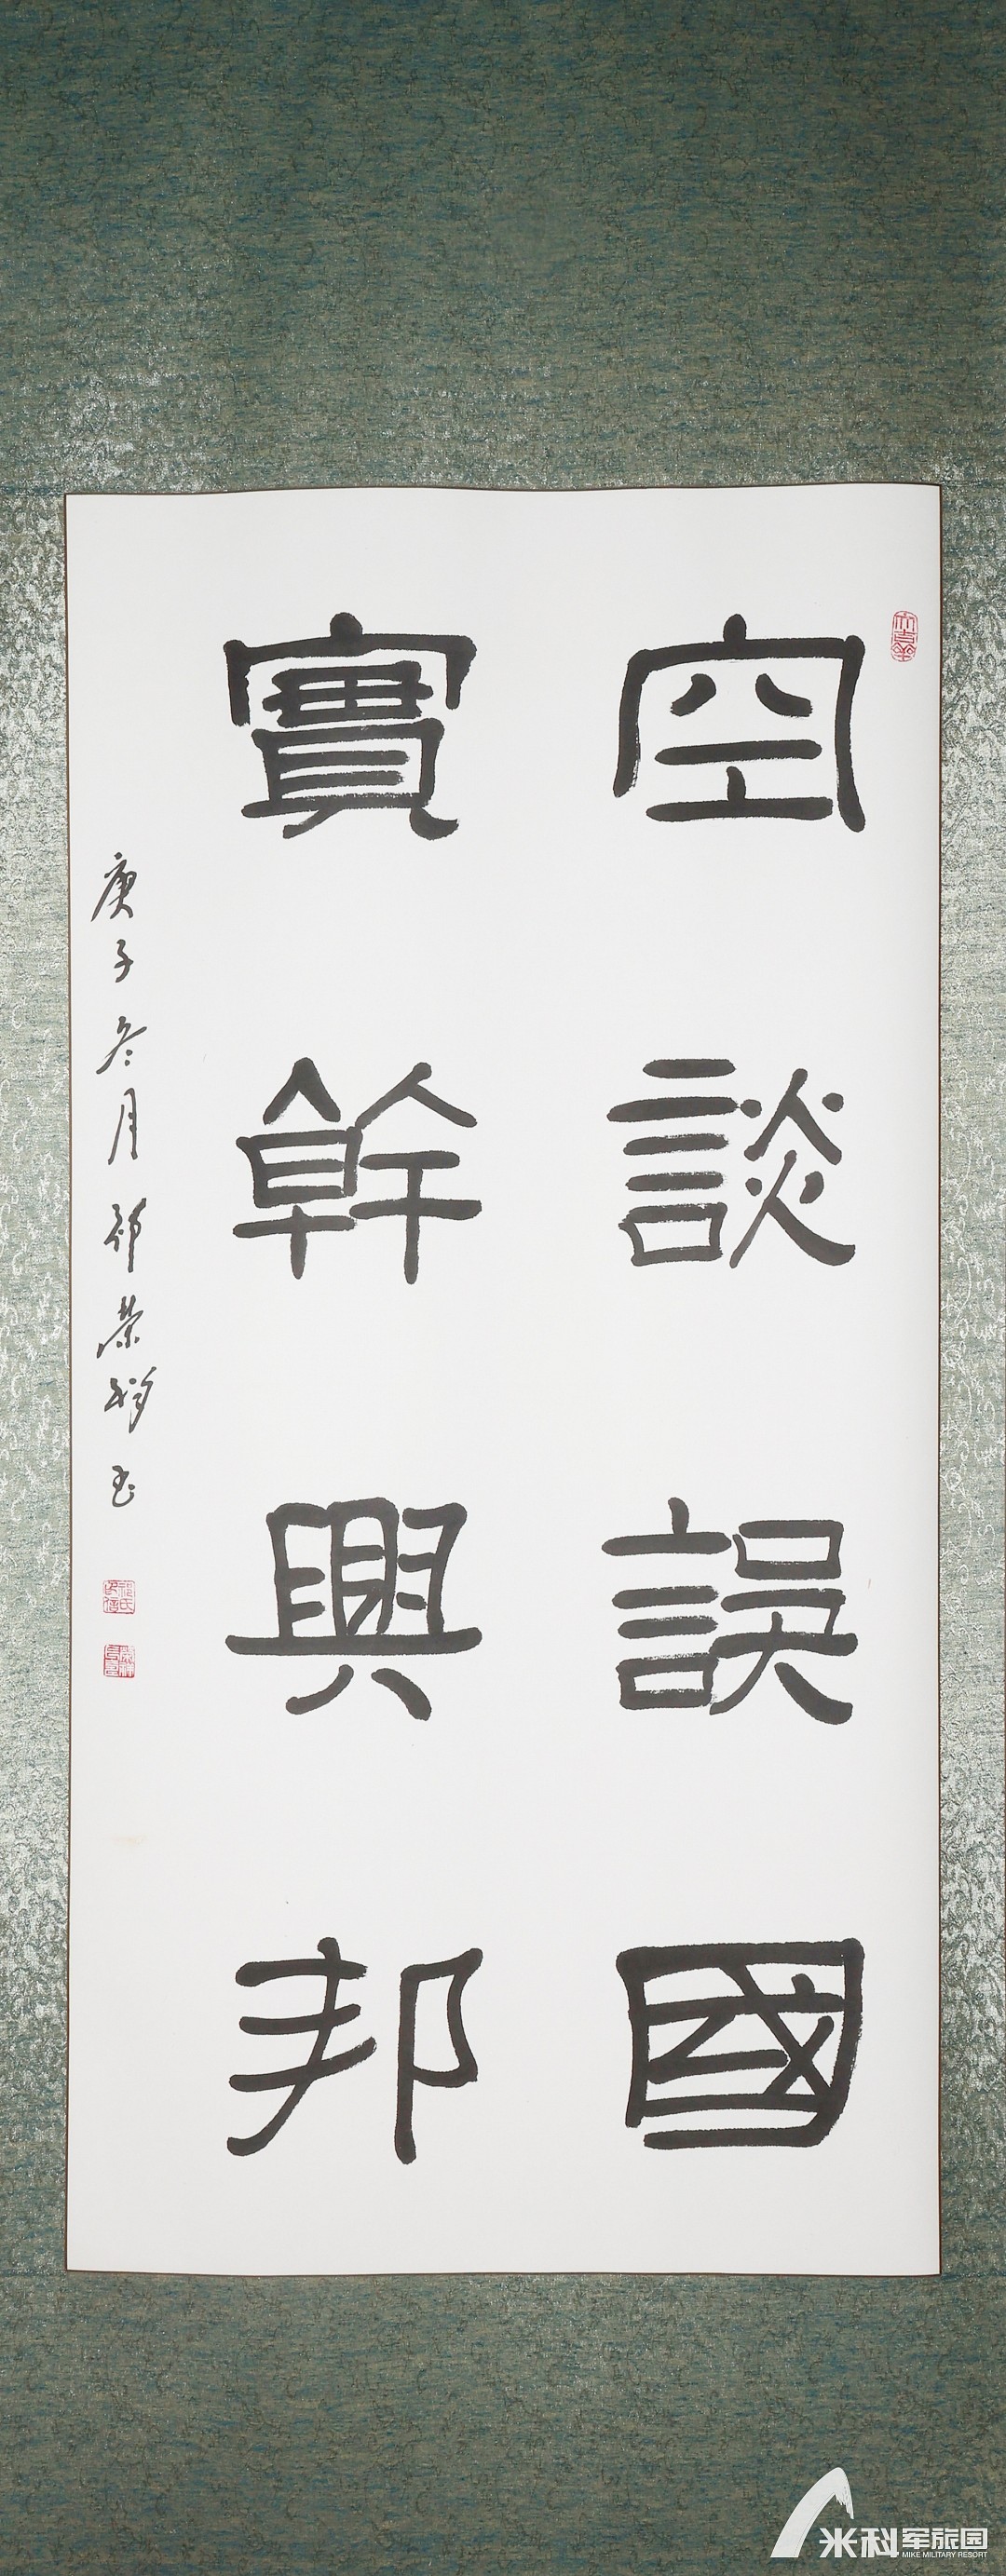 空談誤國
實幹興邦
庚子冬月 榮
米科军旅园
MIKE MILITARY RESORT